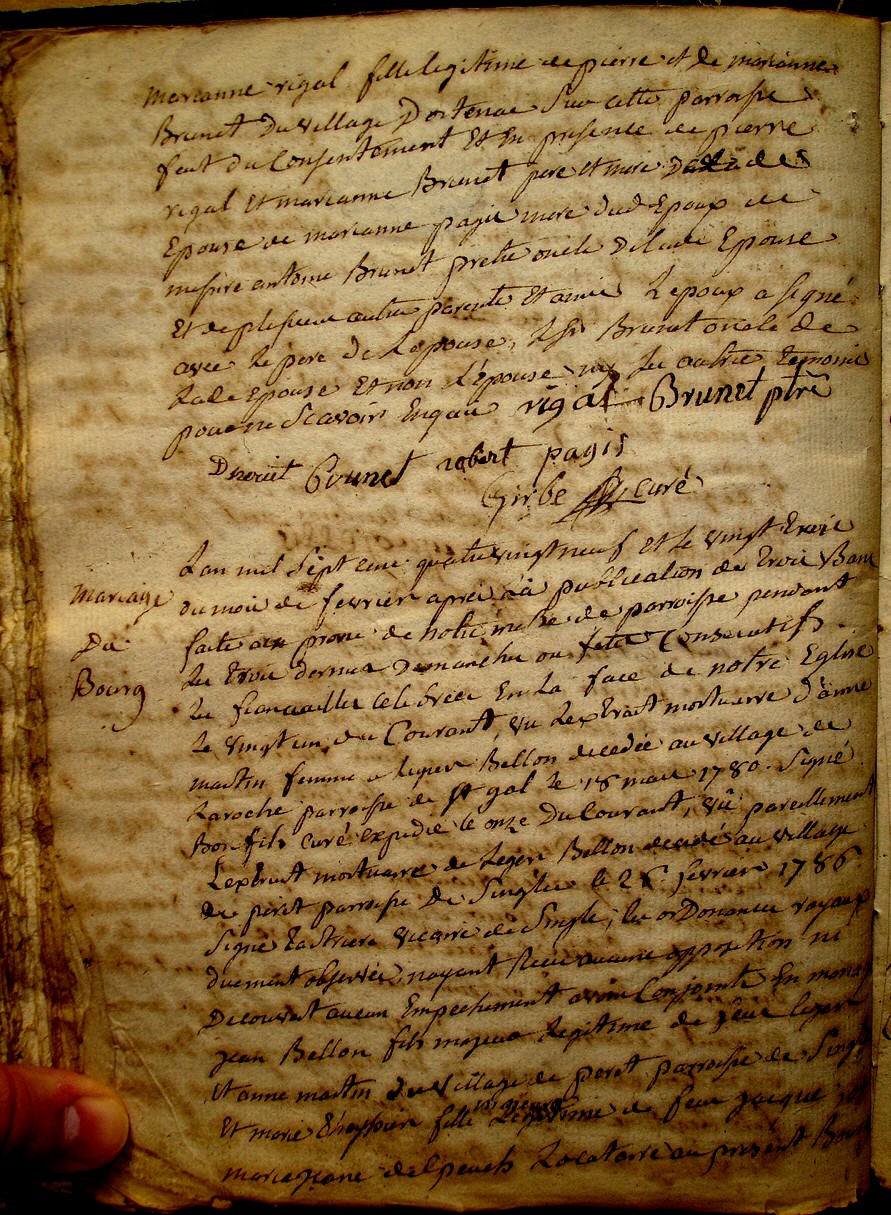 Marianne rigal fille legitime de pierre et de marianne
Brunet Du village Dortenac Sur cette parroisse
fait du Consentement Et En presence de pierre
rigal Et marianne Brunet pere et mere de
Epouse de marianne pagis mere dud Epoux de
messire antoine Brunet pretre oncle de lade Epouse
Et de plusieurs autres parents Et amis Lepoux a signé
avec Le pere de Lepouse, Le Sr Brunet oncle de
Lade Epouse Et non L'épouse Les autres temoins
pour ne Scavoir Enquis rigal Brunet ptre
Brunet robert pagis
Girbe curé
Mariage
Du
Bourg
L'an mil Sept cens quatre vingt neuf et le vingt trois
du mois de fevrier après La publication de trois Bans
faite au prone de notre messe de parroisse pendant
Les trois derniers Dimanches ou fetes Consecutifs
Les fiancailles celebrées En La face de notre Eglise
Le vingt un du Courant, vu Lextrait mortuaire d'anne
martin femme a Leger Bellon decedée au village de
Laroche parroisse de St gal le 18 mars 1780. Signé
Bonfils curé expedié le onze Du Courant, vû pareillement
Lextrait mortuaire de Leger Bellon decedé au village
de peret parroisse de Singles le 26 fevrier 1786
Signé vicaire de Singles, les ordonances royaux
duement observées, nayant Recu aucune opposition ni
Decouvert aucun Empechement avons Conjoints En mariage
Jean Bellon fils majeur Legitime de feus leger
Et anne martin du village de peret parroisse de Singles
Et marie fille mineure Legitime de feux jacque
marie jeane delpeuch Locatarre au present Bourg